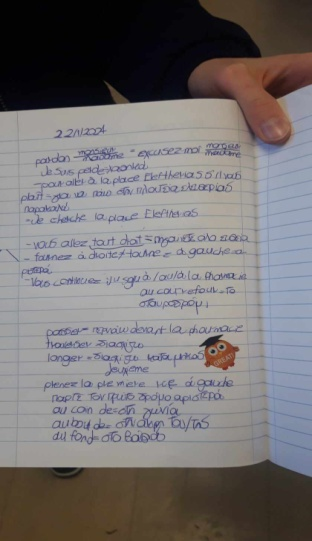 22/1/2024
pardon monsieur madame = excusez-moi monsieur madame
Je suis perdu
-pour aller à la place Eleftherias s'il vous
plaît=για να πάω στη πλατεία Ελευθερίας
παρακαλώ
-Je cherche la place Eleftherias
-vous allez tout droit = πηγαίνετε όλο ευθεία
- tournez à droite/tournez à gauche
-vous continuez jusqu'à/au/à la pharmacie
au carrefour=το
σταυροδρόμι
passer= περνάω devant la pharmacie
traverser διασχίζω
longer =διασχίζω
deuxième
prenez la première rue à gauche
πάρτε τον πρώτο δρόμο αριστερά
au coin de=στη γωνία
au bout de= στην άκρη του/της
au fond= στο βάθος